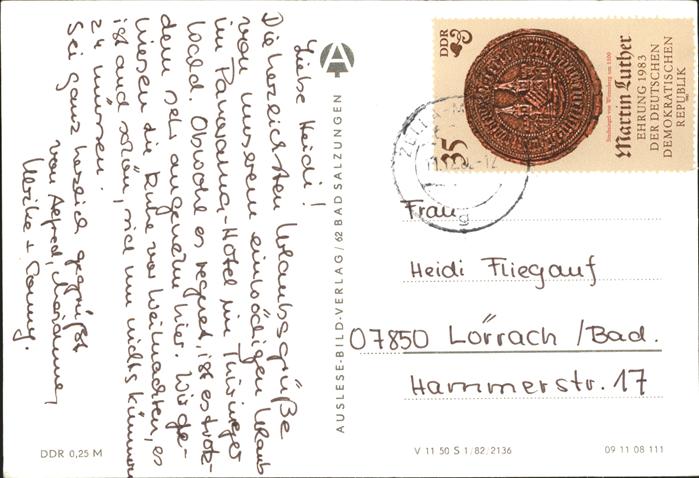 Liebe Heidi!
Die herzlichsten Urlaubsgrüße
von unserem einwöchigen Urlaub
im Panorama-Hotel im Thüringer
Wald. Obwohl es regnet, ist es trotz-
dem sehr angenehm hier. Wir ge-
niesen die Ruhe vor Weihnachten, es
ist auch schön, sich um nichts kümmern
zu müssen.
Sei ganz herzlich gegrüßt
von Alfred, Marianne,
Ulrike + Conny.
AUSLESE-BILD-VERLAG/62 BAD SALZUNGEN
DDR 0,25 M
DDR
35
Stadtsiegel von Wittenberg um 1500
Martin Luther
EHRUNG 1983
DER DEUTSCHEN
DEMOKRATISCHEN
REPUBLIK
ZELLA-M
.12.82-12
g
Frau
Heidi Fliegauf
07850 Lörrach /Bad.
Hammerstr. 17
V 11 50 S 1/82/2136
09 11 08 111